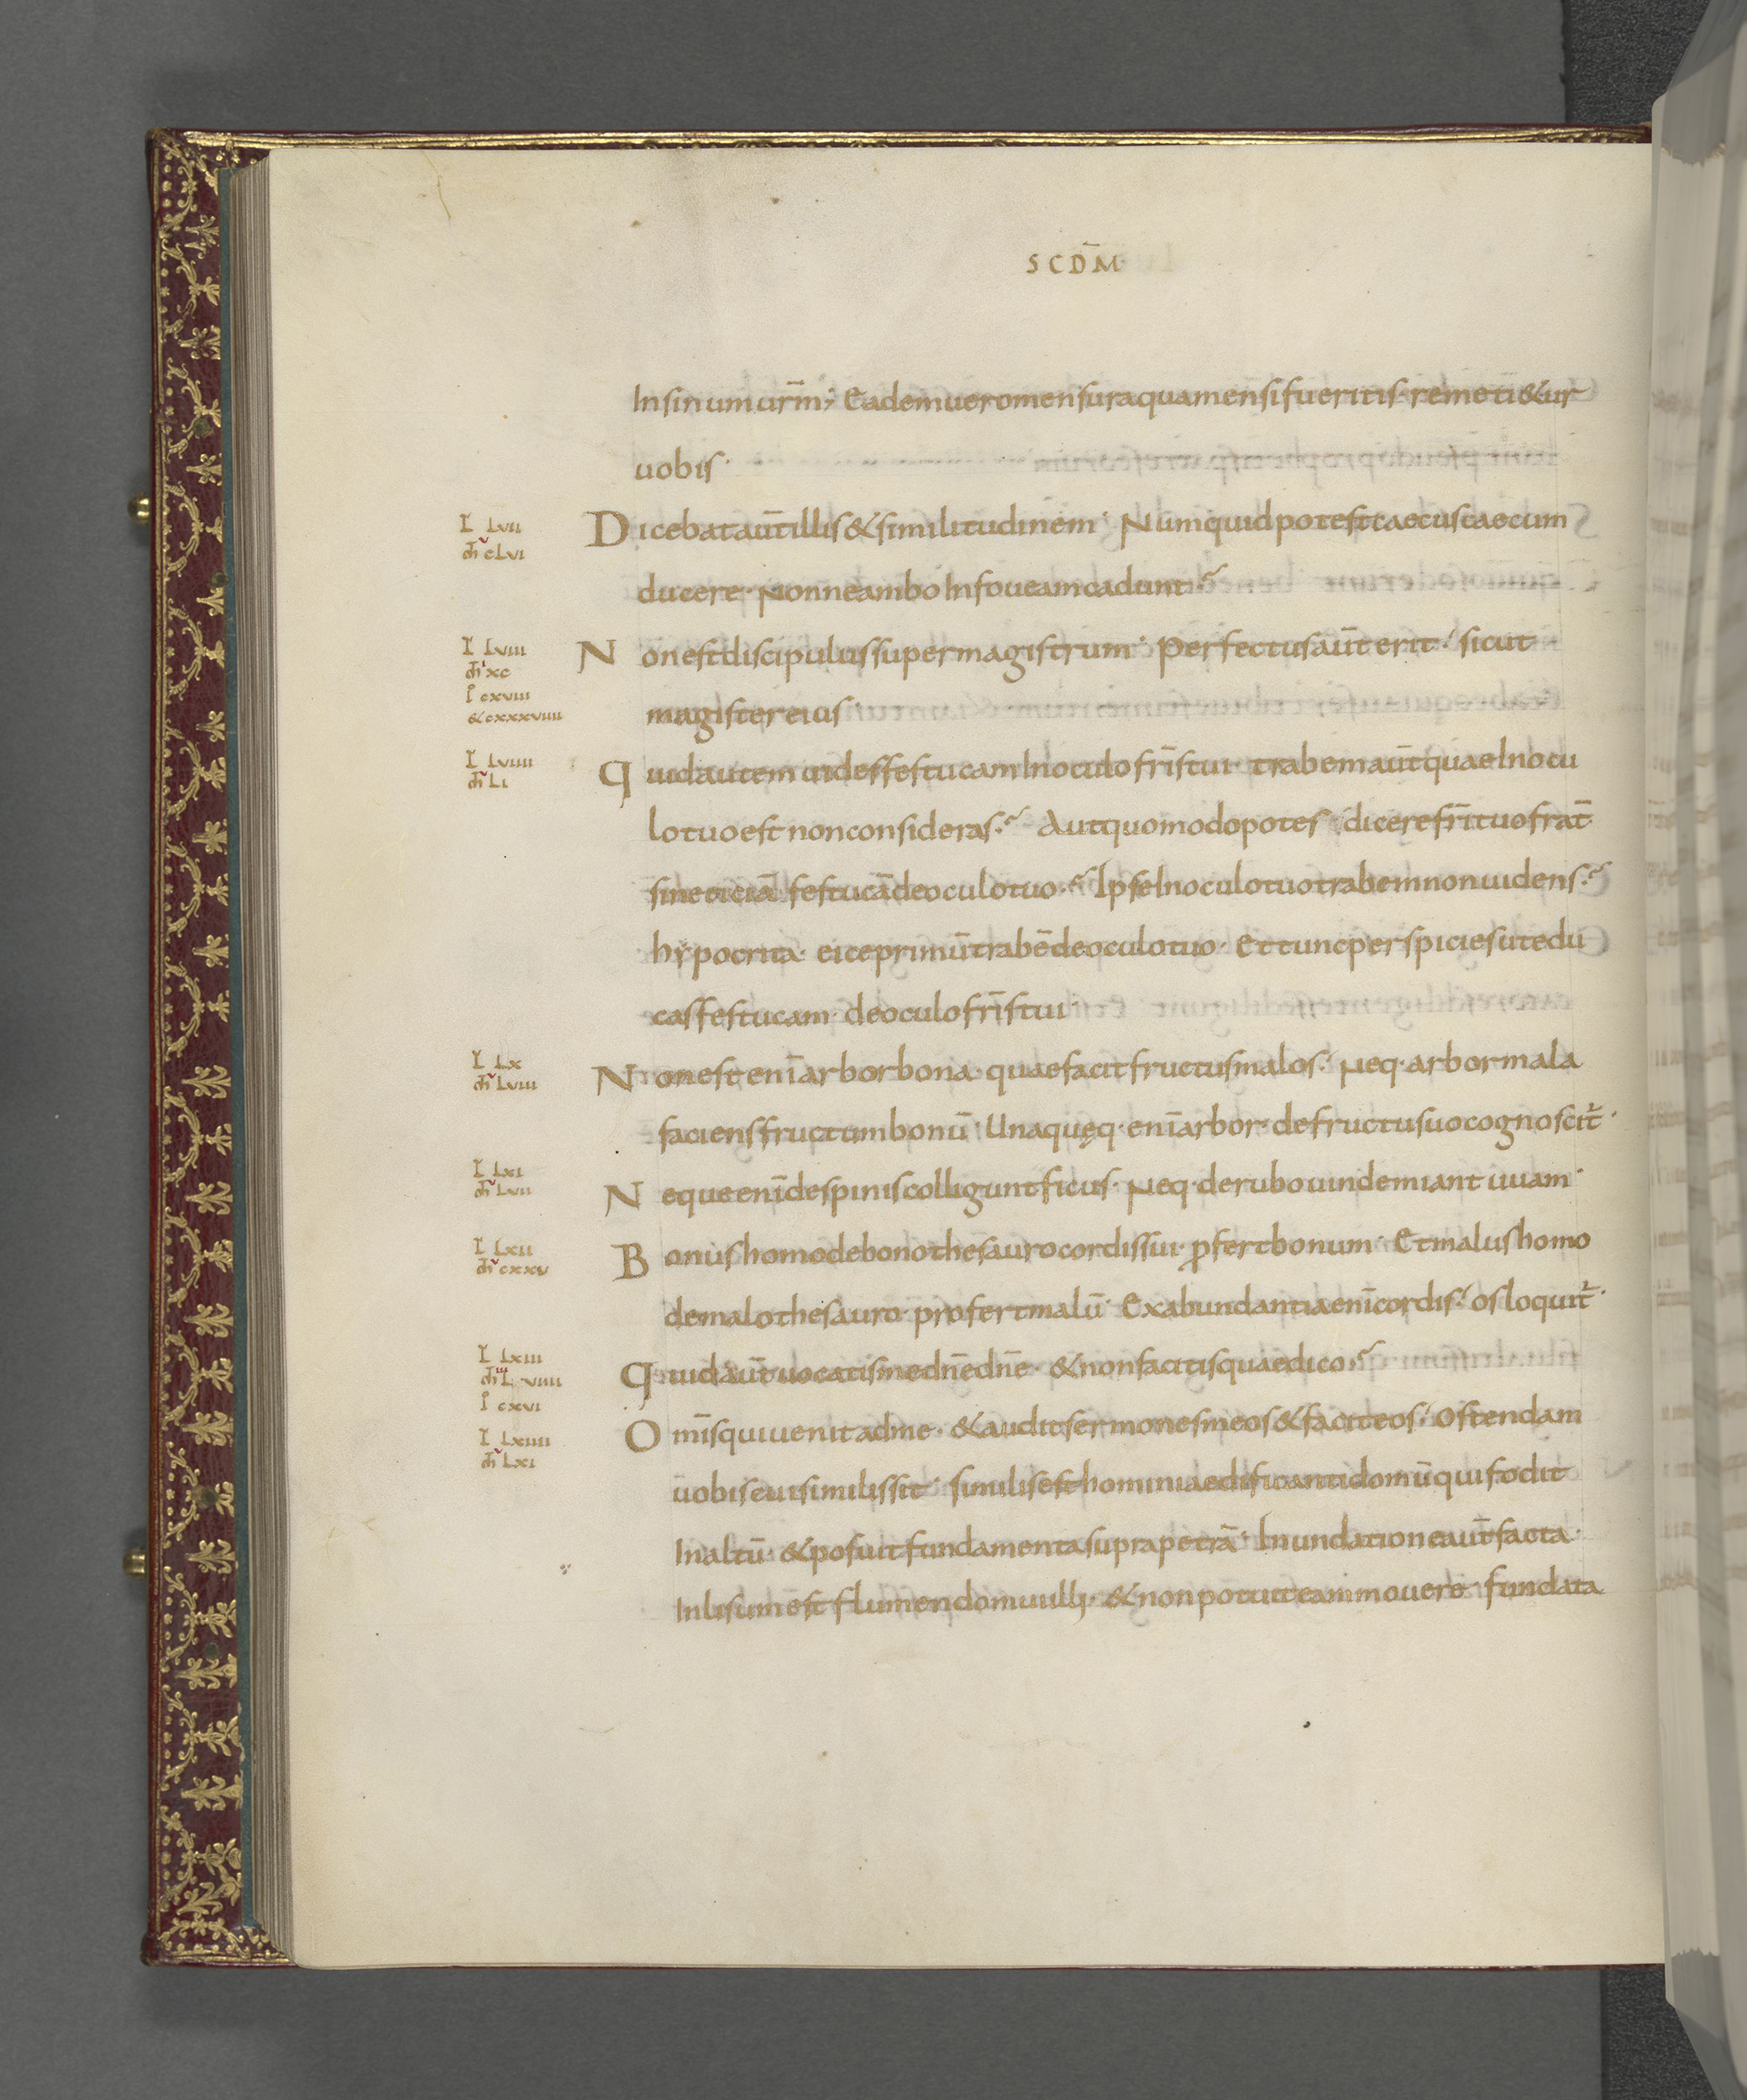 SCDM̄
In sinum ur̄m; Eadem uero mensura qua mensi fueritis remeti&ur
uobis·
L̄ LVII
m̄ CLVI
Dicebat aūt illis & similitudinem· Numquid potest caecus caecum
ducere· Nonne ambo In foueam cadunt?
L̄ LVIII
m̄ XC
I CXVIII
& CXXXVIIII
Non est discipulus super magistrum· Perfectus aūt erit· sicut
magister eius·
L̄ LVIIII
m̄ LI
Quid autem uides festucam In oculo fr̄is tui· trabem aūt quae In ocu
lo tuo est non consideras? Aut quomodo potes dicere fr̄i tuo frat̄
sine eiciā festucā de oculo tuo? Ipse In oculo tuo trabem non uidens?
hypocrita· eice primū trabē de oculo tuo· Et tunc perspicies ut edu
cas festucam· de oculo fr̄is tui·
L̄ LX
m̄ LVIII
Non est enī arbor bona· quae facit fructus malos· Neq· arbor mala
faciens fructum bonū· Unaquęq· enī arbor· de fructu suo cognoscit̄·
L̄ LXI
m̄ LVII
Neque enī de spinis colligunt ficus· Neq· de rubo uindemiant uuam·
L̄ LXII
m̄ CXXV
Bonus homo de bono thesauro cordis sui· ꝓfert bonum· Et malus homo
de malo thesauro· profert malū· Ex abundantia enī cordis· os loquit̄·
L̄ LXIII
I CXVI
Quid aūt uocatis me dn̄e dn̄e· & non facitis quae dico?
L̄ LXIIII
m̄ LXI
Om̄is qui uenit ad me· & audit sermones meos & facit eos· ostendam
uobis cui similis sit· similis est homini aedificanti domū qui fodit
In altū· & posuit fundamenta supra petrā· Inundatione aūt facta·
Inlisum est flumen domui illi· & non potuit eam mouere· fundata